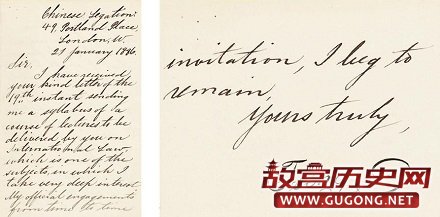 Chinese Legation.
49, Portland Place,
London, W.
21 January 1886.
Sir,
I have received
your kind letter of the
19th instant sending
me a syllabus of a
course of lectures to be
delivered by you on
International Law,
which is one of the
subjects in which I
take very deep interest.
My official engagements
from time to time
invitation, I beg to
remain,
Yours truly,
故宫历史网
WWW.GUGONG.NET